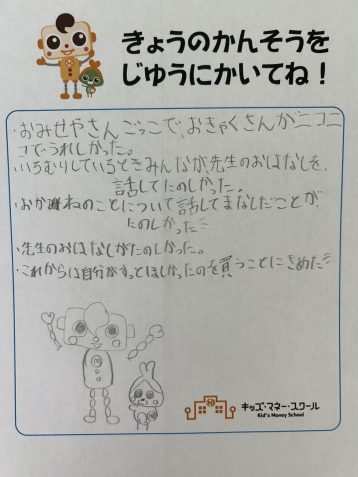 きょうのかんそうを
じゆうにかいてね！
・おみせやさんごっこで、おきゃくさんがニコニ
コでうれしかった。
・いろぬりしているときみんなが、先生のおはなしを、
話してたのしかった。
・おかねのことについて話してまなんだことが
たのしかった
・先生のおはなしがたのしかった。
・これからは自分がずっとほしかったのを買うことにきめた
キッズ・マネー・スクール
Kid's Money School